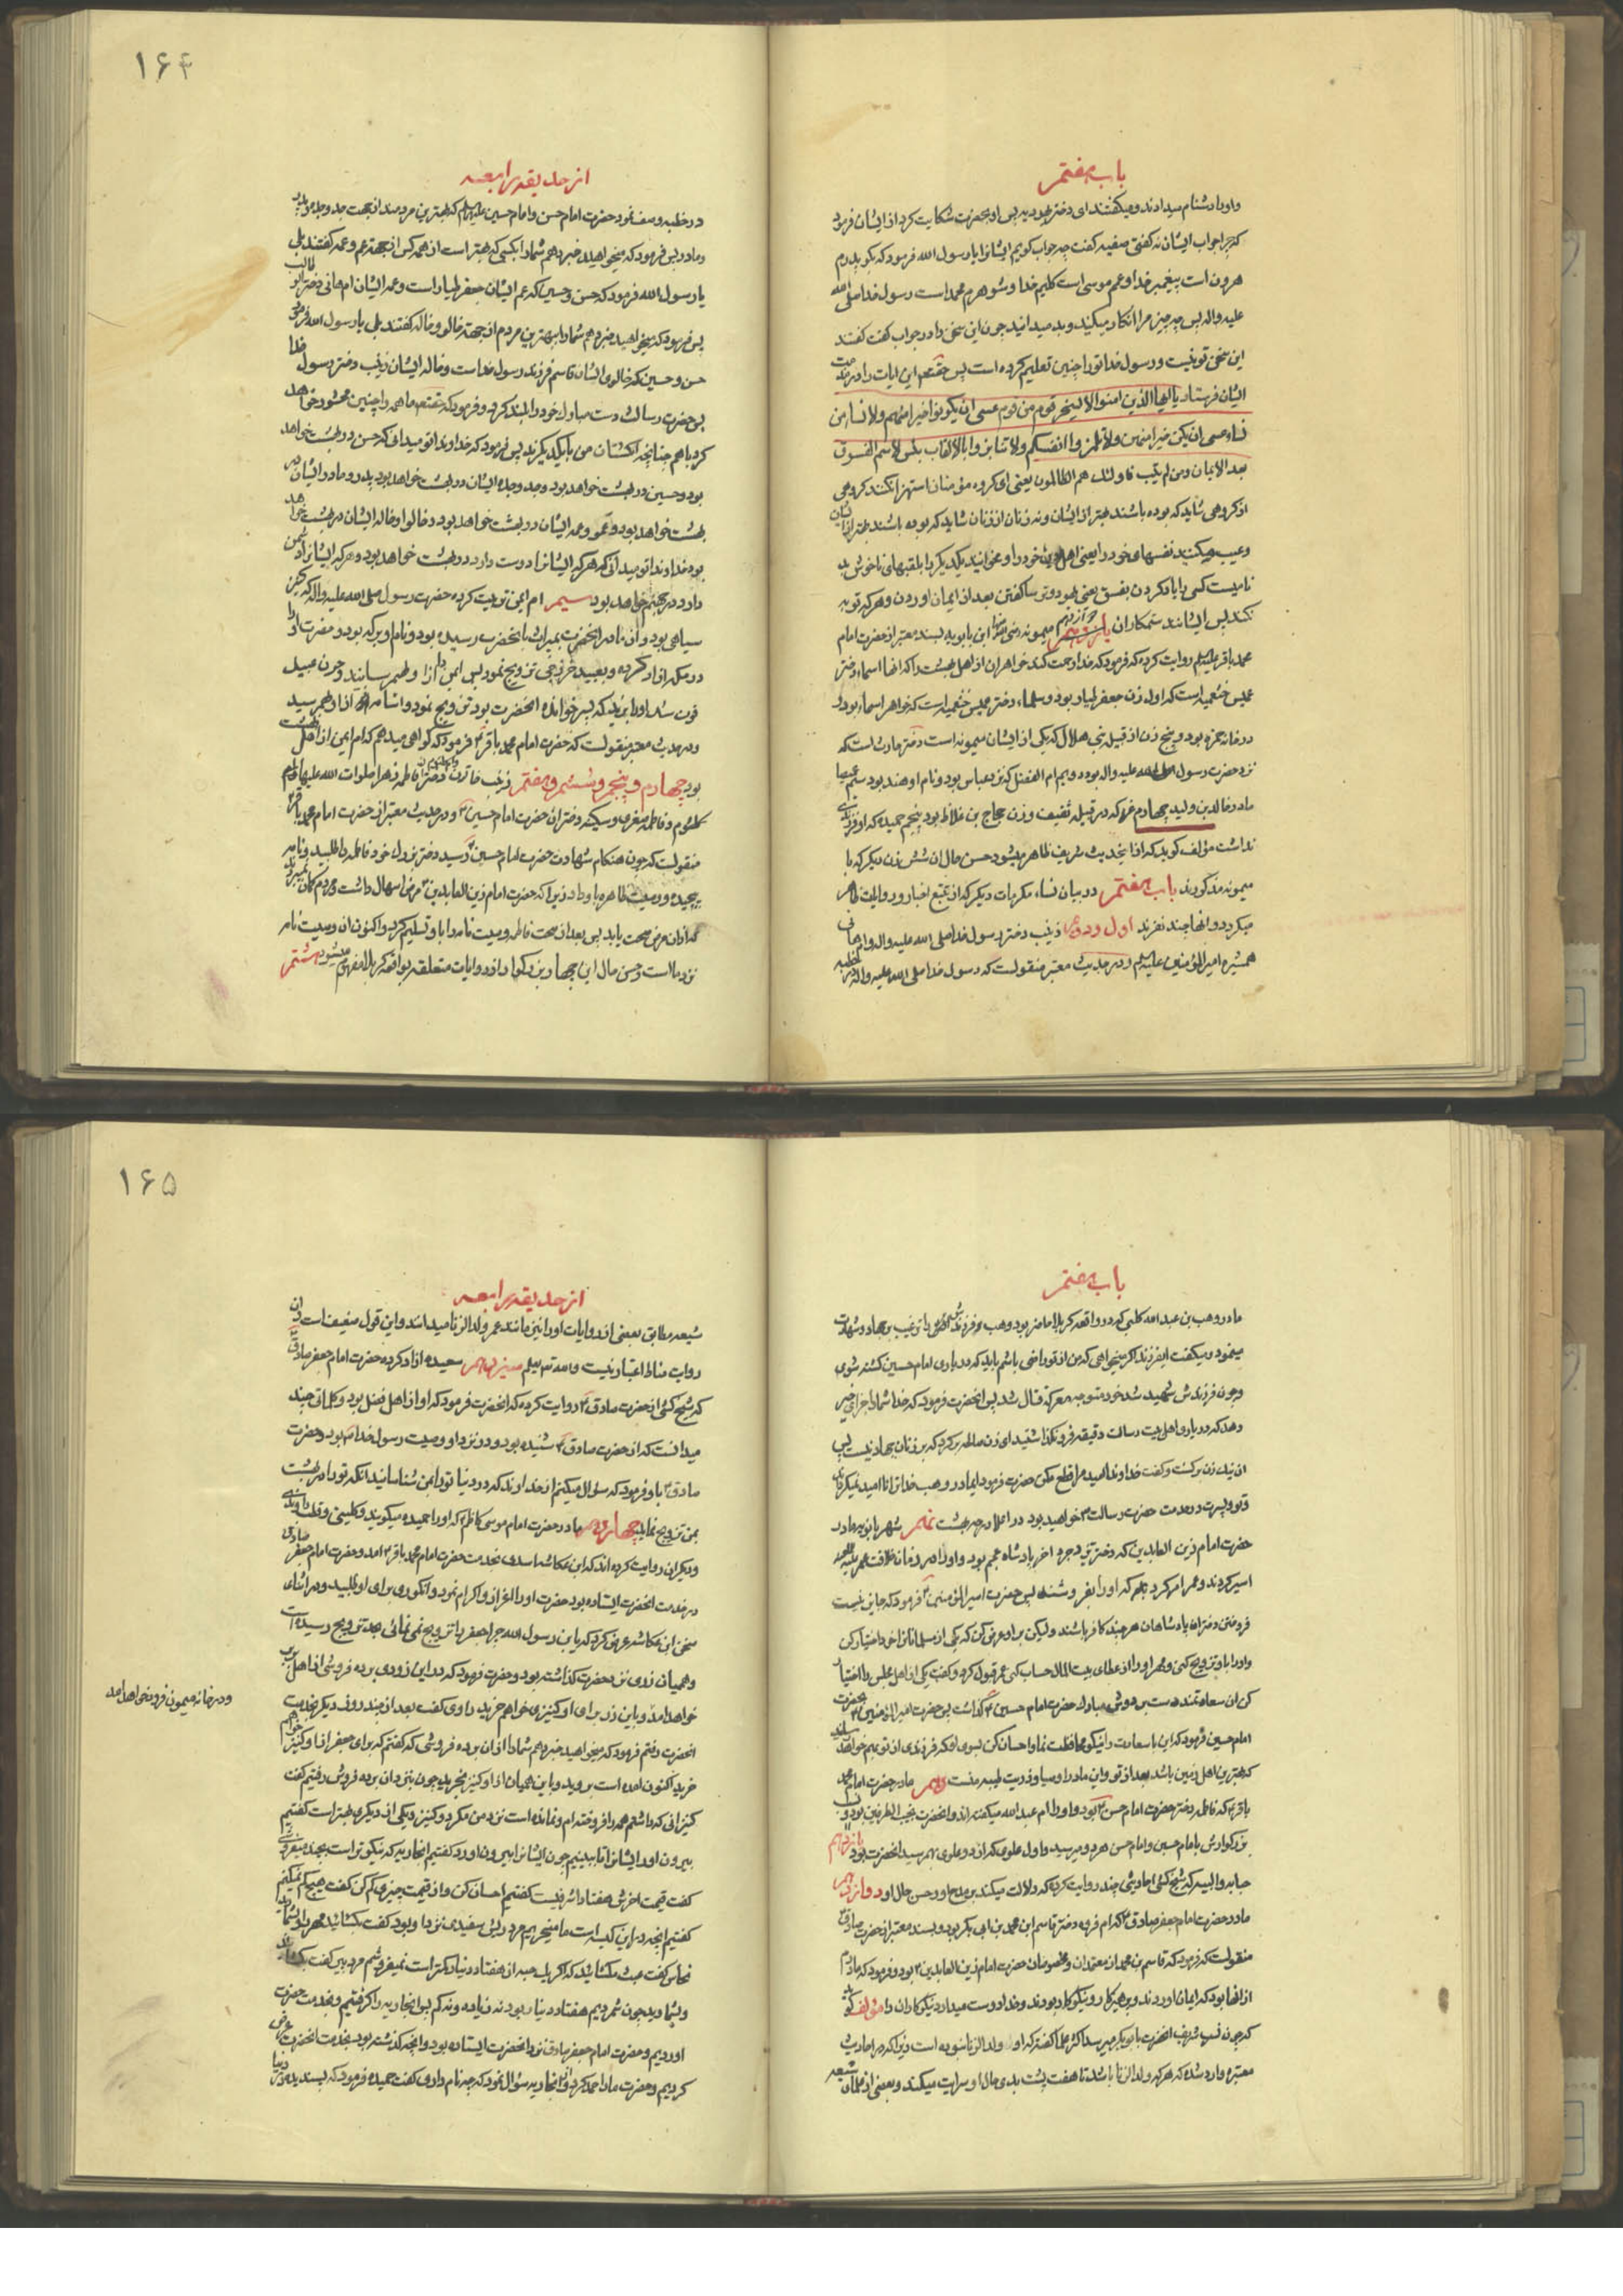 باب هفتم
و او را دشنام میدادند و میکفتند ای دختر یهودیه پس او بحضرت شکایت کرد از ایشان فرمود
که چرا جواب ایشان نه کفتی صفیه کفت چه جواب کویم ایشانرا یا رسول الله فرمود که بکو پدرم
هرون است پیغمبر خدا و عمم موسی است کلیم خدا و شوهرم محمد است رسول خدا صلی الله
علیه واله پس چه چیز مرا انکار میکنید و بد میدانید چون این سخن را در جواب کفت کفتند
این سخن تو نیست و رسول خدا تو را چنین تعلیم کرده است پس حقتعم این ایات را در مذمت
ایشان فرستاد یا ایها الذین امنوا لا یسخر قوم من قوم عسی ان یکونوا خیرا منهم ولا نساء من
نساء عسی ان یکن خیرا منهن ولا تلمزوا انفسکم ولا تنابزوا بالالقاب بئس الاسم الفسوق
بعد الایمان ومن لم یتب فاولئک هم الظالمون یعنی ای کروه مؤمنان استهزا نکنند کروهی
از کروهی شاید که بوده باشند بهتر از ایشان و نه زنان از زنان شاید که بوده باشند بهتر از ایشان
و عیب مکنید نفسهای خود را یعنی اهل دین خود را و مخوانید یکدیکر را بلقبهای ناخوش بد
نامیست کسی را یاد کردن بفسق یعنی یهود و ترسا کفتن بعد از ایمان اوردن و هر که توبه
نکند پس ایشانند ستمکاران یازدهم میمونه ابن بابویه بسند معتبر از حضرت امام
محمد باقر علیه السلم روایت کرده که فرمود که خدا رحمت کند خواهران از اهل بهشت را که انها اسماء دختر
عمیس خثعمیه است که اول زن جعفر طیار بود و سلماء دختر عمیس خثعمیه است که خواهر اسماء بود و
در خانه حمزه بود و پنج زن از قبیله بنی هلال که یکی از ایشان میمونه است دختر حارث است که
نزد حضرت رسول صلی الله علیه واله بود دویم ام الفضل که نزد عباس بود و نام او هند بود سیم غمیصا
مادر خالد بن ولید چهارم عزه که در قبیله ثقیف و زن حجاج بن غلاظ بود پنجم حمیده که او فرزندی
نداشت مؤلف کوید که از اینحدیث شریف ظاهر میشود حسن حال ان شش زن دیکر که با
میمونه مذکورند باب هفتم در بیان نساء مکرمات دیکر که از تتبع اخبار و روایات ظاهر
میکردد و انها چند نفرند اول و دوم زینب دختر رسول خدا صلی الله علیه واله و ام هانی
همشیره امیر المؤمنین علیه السلم و در حدیث معتبر منقولست که رسول خدا صلی الله علیه واله در خطبه
۱۶۴
از حدیقه رابعه
در خطبه وصف نمود حضرت امام حسن و امام حسین علیهما السلم که بهترین مردمند از جهت جد و جده و پدر
و مادر پس فرمود که میخواهید خبر دهم شما را بکسی که بهتر است از همه کس از جهة عم و عمه کفتند بلی
یا رسول الله فرمود که حسن و حسین که عم ایشان جعفر طیار است و عمه ایشان ام هانی دختر ابو طالب
پس فرمود که میخواهید خبر دهم شما را ببهترین مردم از جهة خالو و خاله کفتند بلی یا رسول الله فرمود
حسن و حسین که خالوی ایشان قاسم فرزند رسول خداست و خاله ایشان زینب دختر رسول خدا
پس حضرت رسالت دست مبارک خود را بلند کرد و فرمود که حقتعم ما همه را چنین محشور خواهد
کرد با هم چنانچه انکشتان من با یکدیکرند پس فرمود که خداوندا تو میدانی که حسن در بهشت خواهد
بود و حسین در بهشت خواهد بود و جد و جده ایشان در بهشت خواهد بود پدر و مادر ایشان در
بهشت خواهد بود و عمو و عمه ایشان در بهشت خواهد بود و خالو و خاله ایشان در بهشت خواهد
بود خداوندا تو میدانی که هر که ایشانرا دوست دارد در بهشت خواهد بود و هر که ایشانرا دشمن
دارد در جهنم خواهد بود سیم ام ایمن تربیت کرده حضرت رسول صلی الله علیه واله که کنیز
سیاهی بود و از مادر انحضرت بمیراث بانحضرت رسیده بود و نام او برکه بود و حضرت او را
در مکه ازاد کرده و بعبید خزرجی تزویج نمود پس ایمن از او بهم رسانید و چون عبید
فوت شد او را بزید که پسر خوانده انحضرت بود تزویج نمود و اسامه از او بهم رسید
و در حدیث معتبر منقولست که حضرت امام محمد باقر ع فرمود که کواهی میدهم که ام ایمن از اهل بهشت
بود چهارم و پنجم و ششم و هفتم زینب خاتون دختر فاطمه زهرا صلوات الله علیها و ام
کلثوم و فاطمه صغری و سکینه دختران حضرت امام حسین ع و در حدیث معتبر از حضرت امام محمد باقر ع
منقولست که چون هنکام شهادت حضرت امام حسین ع رسید دختر بزرک خود فاطمه را طلبید و نامه
پیچیده و وصیت ظاهره باو داد زیرا که حضرت امام زین العابدین ع مرض اسهال داشت و مردم کمان نمیبردند
که از ان مرض صحت یابد پس بعد از صحت فاطمه وصیت نامه را باو تسلیم کرد و اکنون ان وصیت نامه
نزد ماست و حسن حال این چهار بزرکوار از روایات متعلقه بواقعه کربلا مفهوم میشود هشتم
باب هفتم
مادر وهب بن عبد الله کلبی که در واقعه کربلا حاضر بود و وهب فرزندش را ترغیب بجهاد و شهادت
مینمود و میکفت ایفرزند اکر میخواهی که من از تو راضی باشم باید که در یاری امام حسین کشته شوی
و چون فرزندش شهید شد خود متوجه معرکه قتال شد پس انحضرت فرمود که خدا شما را جزای خیر
دهد که در یاری اهل بیت رسالت دقیقه فرو نکذاشتید ای زن صالحه برکرد که بر زنان جهاد نیست پس
ان نیک زن برکشت و کفت خداوندا امید مرا قطع مکن حضرت فرمود ای مادر وهب خدا ترا نا امید نمیکرداند
تو و پسرت در خدمت حضرت رسالت ع خواهید بود در اعلا درجه بهشت نهم شهر بانو مادر
حضرت امام زین العابدین که دختر یزدجرد اخر پادشاه عجم بود و او را در زمان خلافت عمر
اسیر کردند و عمر امر کرد که او را بفروشند پس حضرت امیر المؤمنین ع فرمود که جایز نیست
فروختن دختران پادشاهان هر چند کافر باشند و لیکن بر او عرض کن که یکی از مسلمانان را خود اختیار کن
و او را باو تزویج کنی و مهر او را از عطای بیت المال حساب کنی عمر قبول کرد و کفت یکی از اهل مجلس را اختیار
کن ان سعادتمند دست بر دوش مبارک حضرت امام حسین ع کذاشت پس حضرت امیر المؤمنین ع بحضرت
امام حسین فرمود که این با سعادت را نیکو محافظت نما و احسان کن بسوی او که فرزندی از تو بهم خواهد رسانید
که بهترین اهل زمین باشد بعد از تو و این مادر اوصیا و ذریت طیبه منست دهم مادر حضرت امام محمد
باقر ع که فاطمه دختر حضرت امام حسن ع بود و او را ام عبد الله میکفته اند و انحضرت نجیب الطرفین بود و نسب
بزرکوارش بامام حسین و امام حسن هر دو میرسید و اول علوی که از دو علوی بهم رسید انحضرت بود یازدهم
حبابه والبیه که شیخ کشی احادیثی چند روایت کرده که دلالت میکند بر مدح او و حسن حال او دوازدهم
مادر حضرت امام جعفر صادق ع که ام فروه دختر قاسم ابن محمد بن ابی بکر بود و بسند معتبر از حضرت صادق ع
منقولست که فرمود که قاسم بن محمد از معتمدان و مخصوصان حضرت امام زین العابدین ع بود و فرمود که مادرم
از انها بود که ایمان اوردند و پرهیزکار و نیکوکار بودند و خدا دوست میدارد نیکوکاران را مؤلف کوید
که چون نسب شریف انحضرت بابو بکر میرسد اکثر علما کفته که او ولد الزنا نبوده است زیرا که در احادیث
معتبره وارد شده که هر که ولد الزنا باشد تا هفت پشت بدی حال او سرایت میکند و بعضی از علمای شیعه
۱۶۵
از حدیقه رابعه
شیعه مطابق بعضی از روایات او را نیز مانند عمر ولد الزنا میدانند و این قول ضعیف است و ان
روایت مناط اعتبار نیست و الله یعلم سیزدهم سعیده ازاد کرده حضرت امام جعفر صادق ع
که شیخ کشی از حضرت صادق ع روایت کرده که انحضرت فرمود که او از اهل فضل بود و کلماتی چند
میدانست که از حضرت صادق ع شنیده بود و در نزد او وصیت رسول خدا بود و حضرت
صادق ع باو فرمود که سؤال میکنم از خداوند که در دنیا تو را بمن شناسانید انکه تو را در بهشت
بمن تزویج نماید چهاردهم مادر حضرت امام موسی کاظم ع که او را حمیده میکویند و کلینی و قطب راوندی
و دیکران روایت کرده اند که ابن عکاشه اسدی بخدمت حضرت امام محمد باقر ع امد و حضرت امام جعفر صادق ع
در خدمت انحضرت ایستاده بود حضرت او را اعزاز و اکرام نمود و انکوری برای او طلبید و در اثنای
سخن ابن عکاشه عرض کرد که یا بن رسول الله چرا جعفر را تزویج نمی نمائی بحد تزویج رسیده است
و همیان زری نزد حضرت کذاشته بود و حضرت فرمود که در این زودی برده فروشی از اهل بربر
خواهد امد و باین زر برای او کنیزی خواهم خرید راوی کفت بعد از چند روز دیکر بخدمت
و در خانه میمون فرود خواهد امد
انحضرت رفتم فرمود که میخواهید خبر دهم شما را از ان برده فروشی که کفتم که برای جعفر از او کنیز خواهم
خرید اکنون امده است بروید و باین همیان از او کنیز بخرید چون بنزد ان برده فروش رفتیم کفت
کنیزانی که داشتم همه را فروخته ام و نمانده است نزد من مکر دو کنیز که یکی از دیکری بهتر است کفتیم
بیرون اور ایشانرا تا ببینیم چون ایشانرا بیرون اورد کفتیم انجاریه که نیکوتر است بچند میفروشی
کفت قیمت اخرش هفتاد اشرفیست کفتیم احسان کن و از قیمت چیزی کم کن کفت هیچ کم نمیکنم
کفتیم انچه در این کیسه است ما میخریم مرد ریش سفیدی نزد او بود کفت بکشائید مهر او را
نخاس کفت عبث مکشائید که اکر یک حبه از هفتاد دینار کمتر است نمیفروشم مرد پیر کفت بکشائید
و بشمارید چون شمردیم هفتاد دینار بود نه زیاده و نه کم پس انجاریه را کرفتیم و بخدمت حضرت
اوردیم و حضرت امام جعفر صادق نزد انحضرت ایستاده بود و انچه کذشته بود بخدمت انحضرت عرض
کردیم و حضرت ما را حمد کرد و از انجاریه سؤال نمود که چه نام داری کفت حمیده فرمود که پسندیده در دنیا